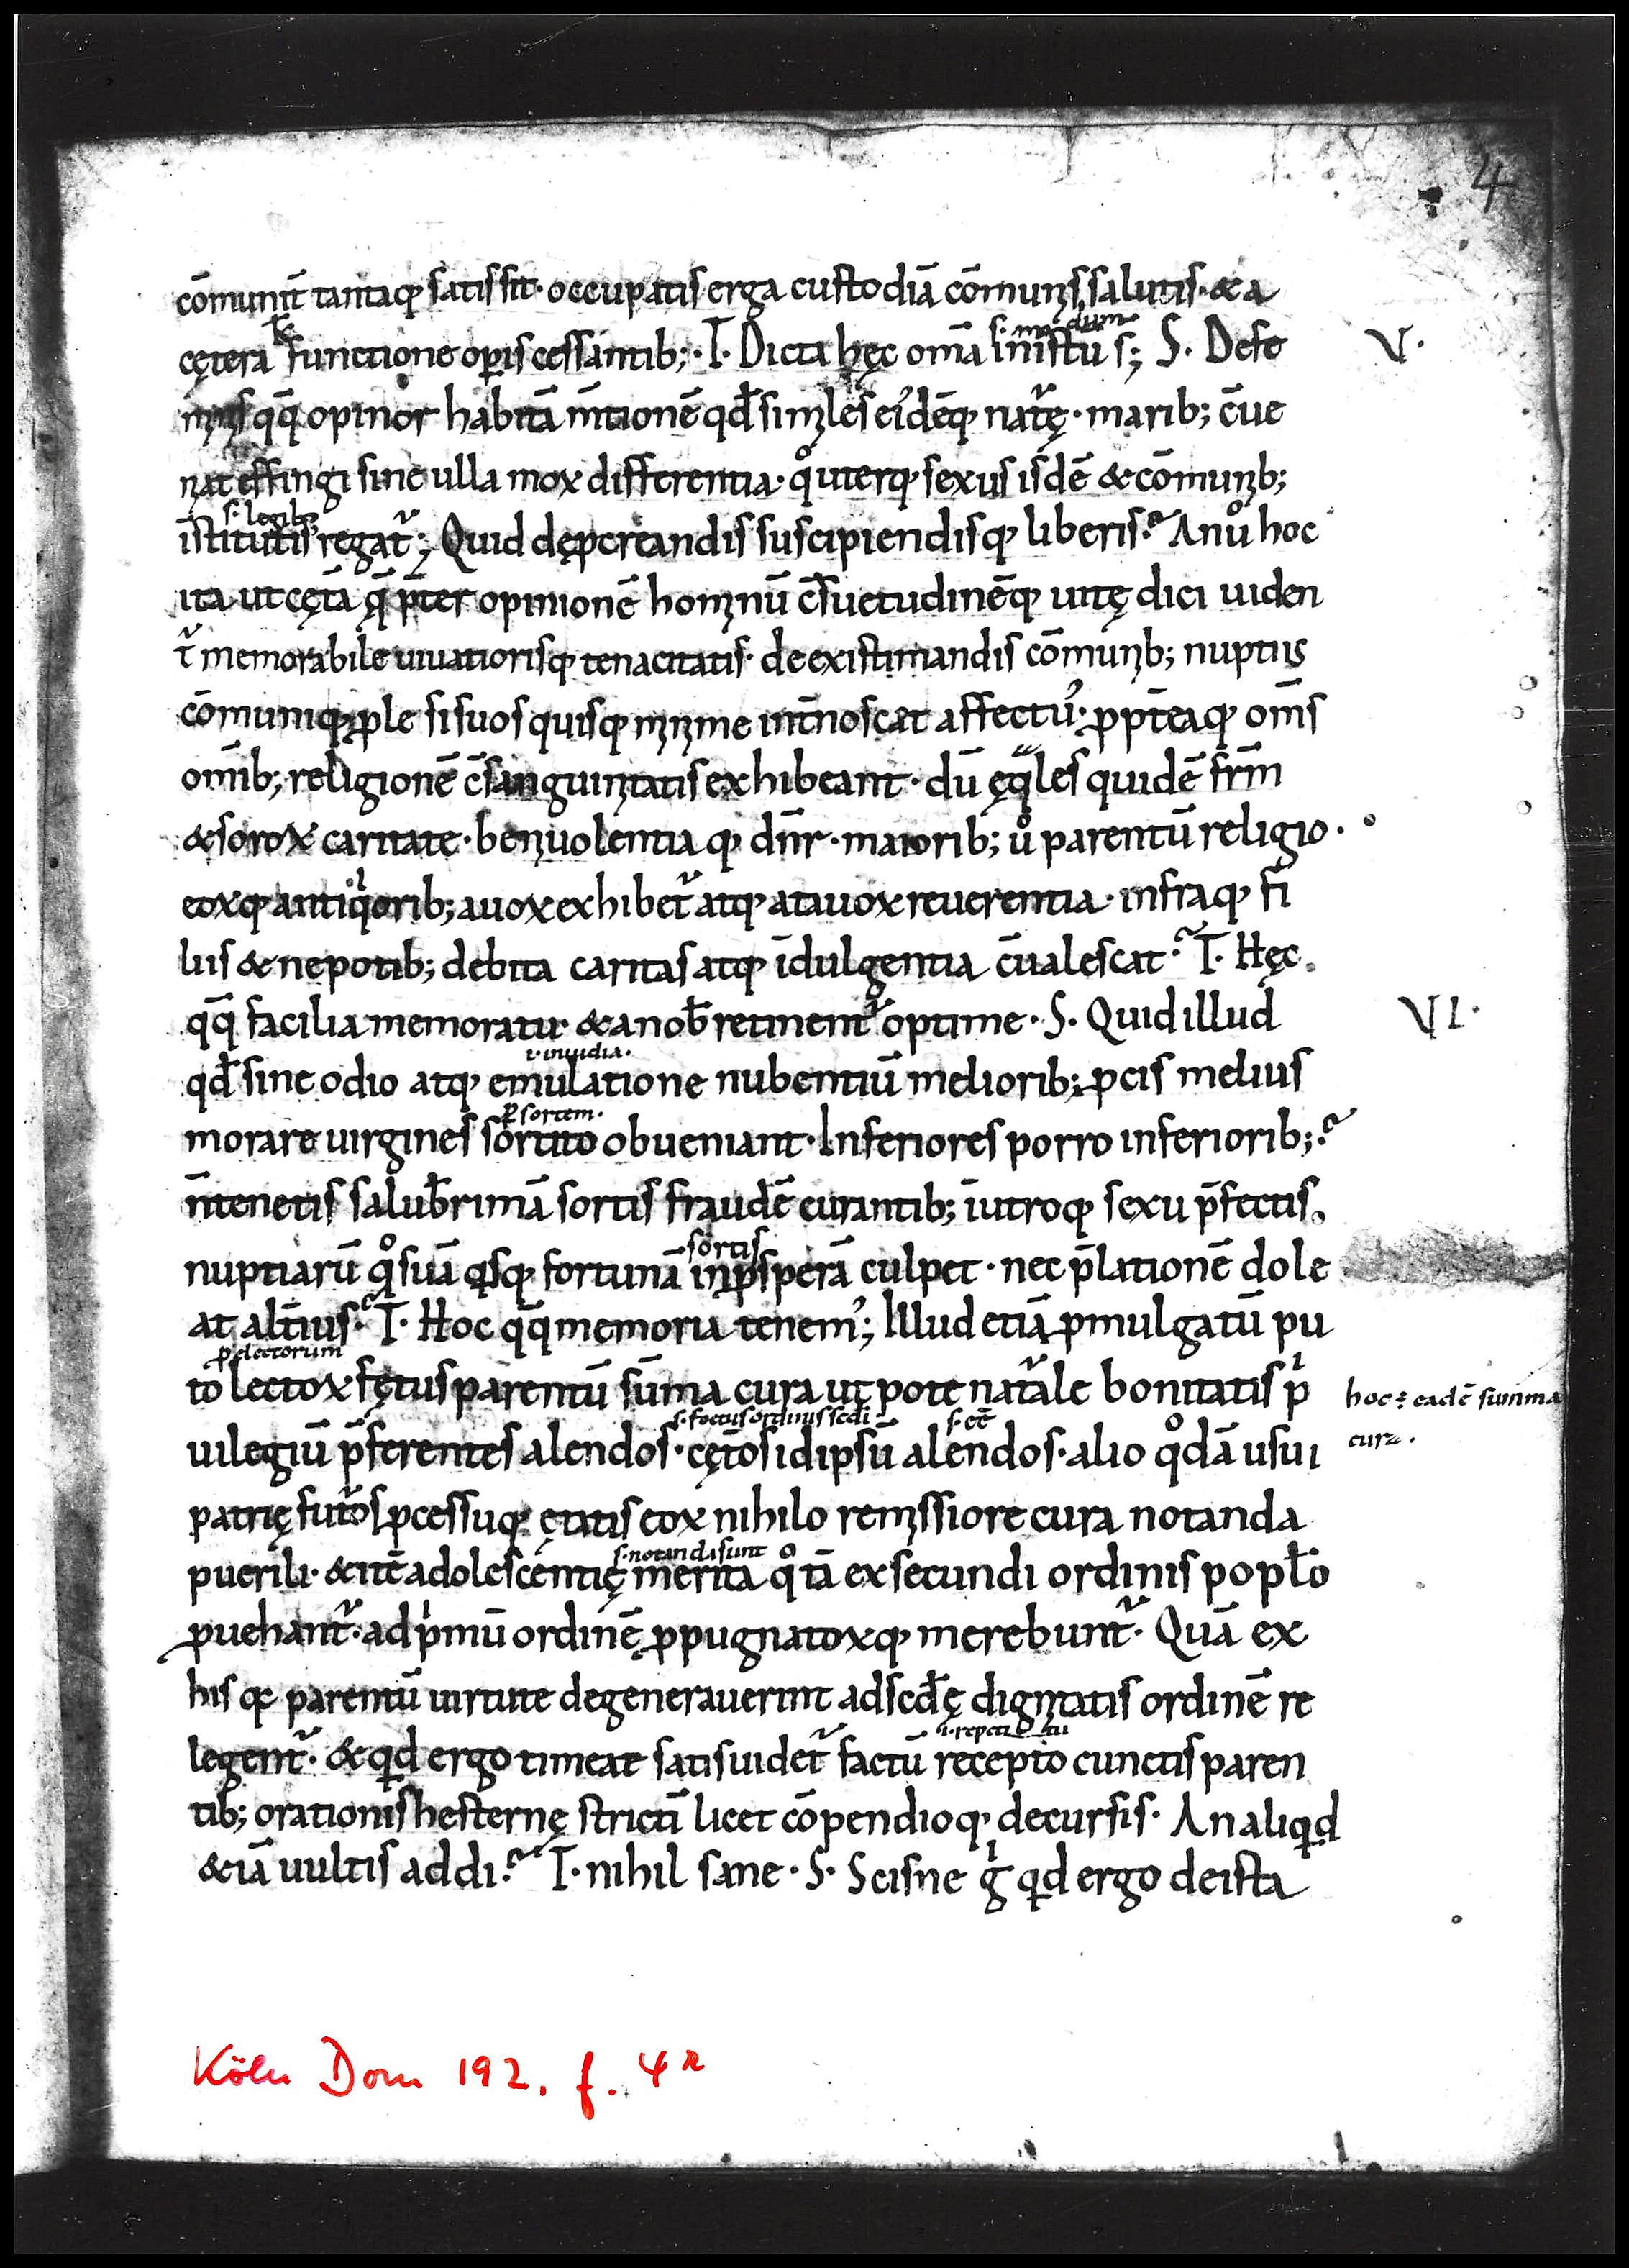 4
cōmunit̄ tantaq; satis sit· occupatis erga custodiā cōmunis salutis· & a
s. modum
cęterā functione op̱is cessantib;· T· Dicta hęc om̄a in istū s̄; S· De fe V·
minis qq̄ opinor habitā m̄tionē qđ similes eidēq; nat͛ę· marib; c̄ue
niat effingi sine ulla mox differentia· qͦ uterq; sexus isdē & cōmunib;
s. legib;
īstitutis regat͛; Quid dę ꝓcreandis suscipiendisq; liberis? An uͦ hoc
ita ut cęt̄a q̄ p̄ter opinionē hominū c̄suetudinēq; uitę dici uiden
t͛ memorabile uiuatiorisq; tenacitatis· de existimandis cōmunib; nuptiis
cōmuniq; ꝓle si suos quisq; minime int̄noscat affectuʼ· ꝓpt̄eaq; om̄s
om̄ib; religionē c̄sanguinitatis exhibeant· dū ęqͣles quidē fr̄m
& soroꝝ caritate· beniuolentiaq; dn̄r· maiorib; uͦ parentū religio·
eoꝝq; antiqͥorib; auoꝝ exhibet͛ atq; atauoꝝ reuerentia· infraq; fi
liis & nepotib; debita caritas atq; īdulgentia c̄ualescat? T· Hęc
qq̄ facilia memoratu· & a nob̄ retinent͛ optime· S· Quid illud VI·
i· inuidia·
qđ sine odio atq; emulatione nubentiū meliorib; ꝓcis melius
ꝑ sortem·
morate uirgines sortito obueniant· Inferiores porro inferiorib;?
m̄tenetis salub̄rimā sortis fraudē curantib; ī utroq; sexu p̄fectis
sortis
nuptiarū qͦ suā qisq; fortunā inꝓsperā culpet· nec p̄lationē dole
at alt̄ius? T· Hoc qq̄ memoria tenemʼ; Illud etiā ꝓmulgatū pu
p̱ electorum
to lectoꝝ fętus parentū sūma cura ut pote nat͛ale bonitatis pͥ
hoc ÷ eadē summa
s. foetus ordinis scđi s. eē
uilegiū p̄ferentes alendos· cęt̄os id ipsū alendos· alio qͦdā usui
cura·
patrię fut͛os ꝓcessuq; ętatis eoꝝ nihilo remissiore cura notanda
s. notanda sunt
puerili· & itē adolescentię merita qͦ tā ex secundi ordinis poplo
ꝓuehant͛· ad pͥmū ordinē ꝓpugnatoꝝq; merebunt͛· Quā ex
his q̨ parentū uirtute degenerauerint ad scđę dignitatis ordinē re
legent͛· & qid ergo timeae satis uidet͛ factū recepto cunctis paren
tib; orationis hesternę stricti licet cōpendioq; decursis· An aliqid
&iā uultis addi? T· nihil sane· S· Scisne gͥ qid ergo de ista
Köln Dom 192. f. 4r